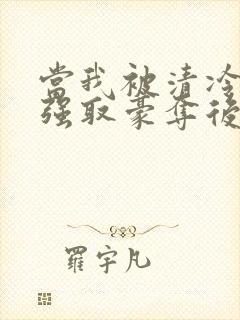 當我被清冷
強取豪奪後
羅宇凡